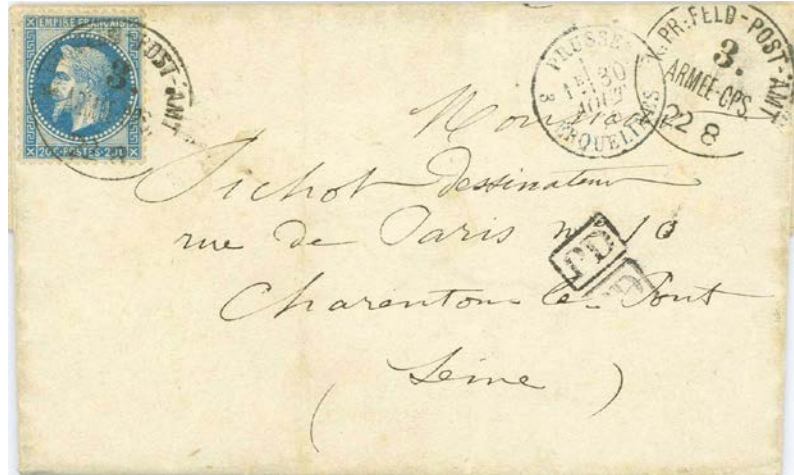 EMPIRE FRANÇAIS
20C-POSTES-20C
POST-AMT
3.
PRUSSE
3 ERQUELINES
1E 30
AOUT
K.PR:FELD-POST-AMT
3.
ARMEE-CPS.
22 8
Monsieur
Pichot dessinateur
rue de Paris nº 10
PD
PD
Charenton le Pont
(Seine)